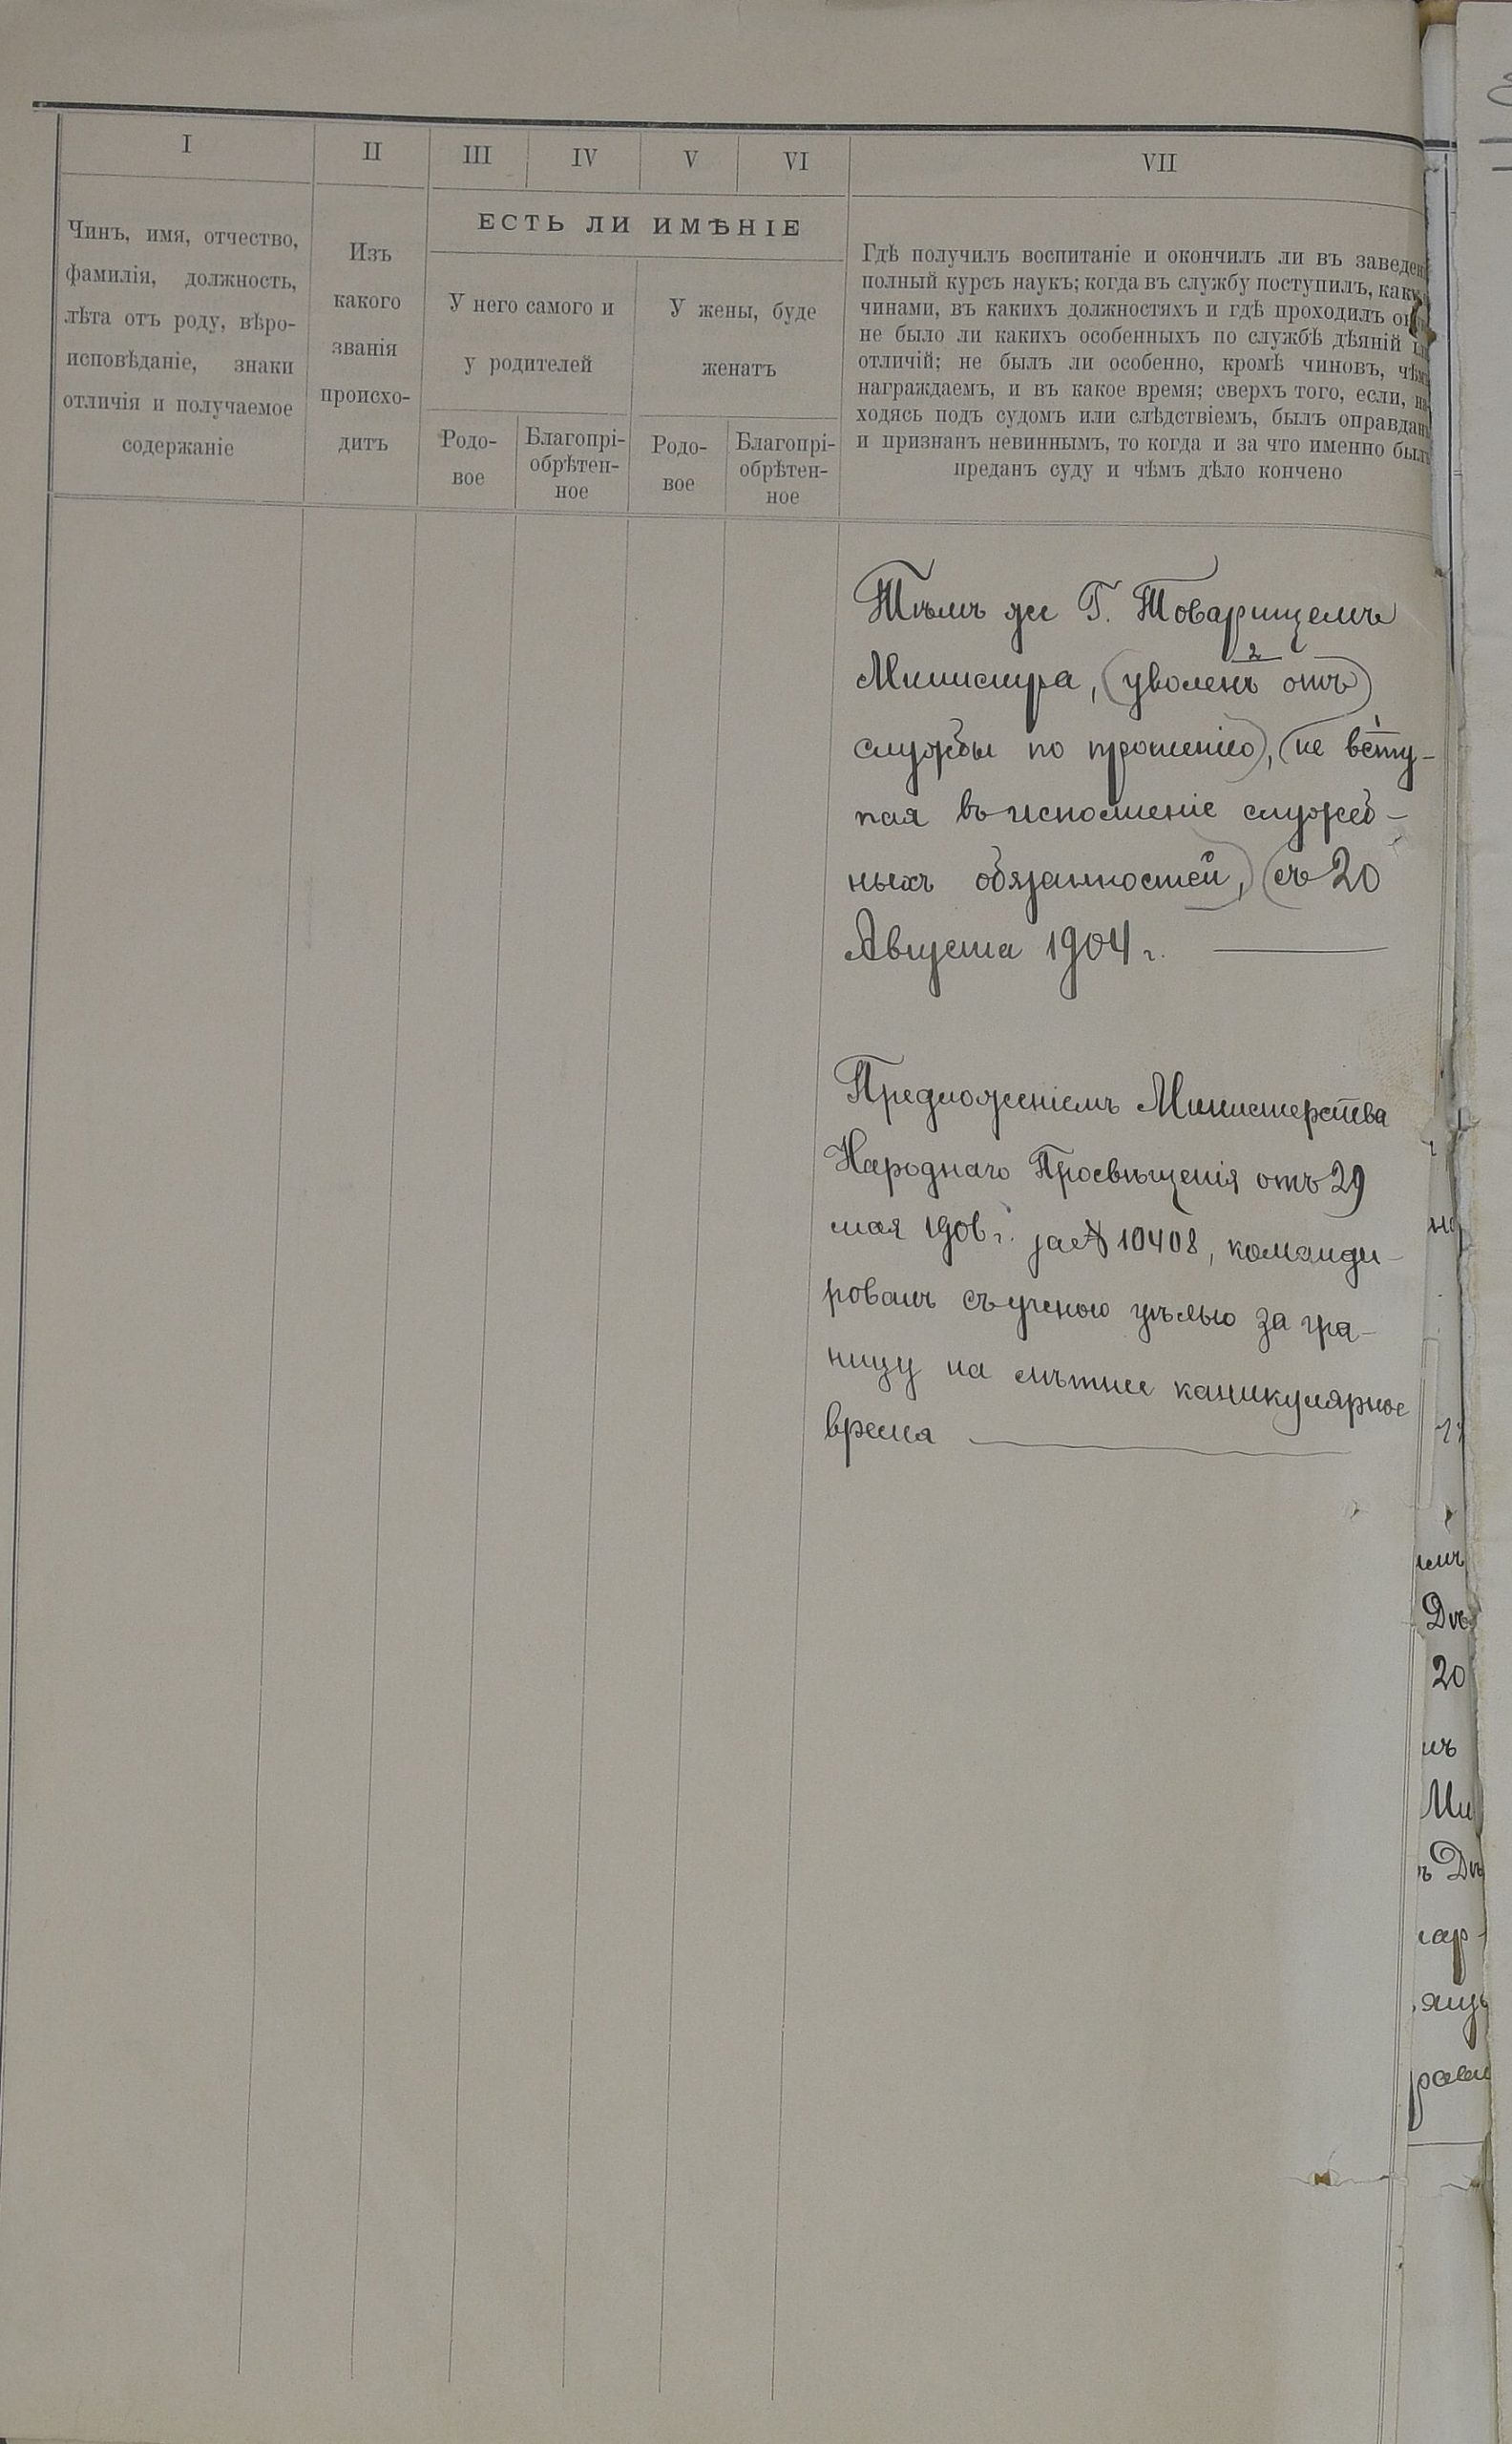 I
II
III
IV
V
VI
VII
Чинъ, имя, отчество,
фамилія, должность,
лѣта отъ роду, вѣро-
исповѣданіе, знаки
отличія и получаемое
содержаніе
Изъ
какого
званія
происхо-
дитъ
ЕСТЬ ЛИ ИМѢНІЕ
У него самого и
у родителей
У жены, буде
женатъ
Родо-
вое
Благопрі-
обрѣтен-
ное
Родо-
вое
Благопрі-
обрѣтен-
ное
Гдѣ получилъ воспитаніе и окончилъ ли въ заведен
полный курсъ наукъ; когда въ службу поступилъ, как
чинами, въ какихъ должностяхъ и гдѣ проходилъ
не было ли какихъ особенныхъ по службѣ дѣяній
отличій; не былъ ли особенно, кромѣ чиновъ, чѣмъ
награждаемъ, и въ какое время; сверхъ того, если, на-
ходясь подъ судомъ или слѣдствіемъ, былъ оправданъ
и признанъ невиннымъ, то когда и за что именно былъ
преданъ суду и чѣмъ дѣло кончено
Тѣмъ же Г. Товарищемъ
2
Министра, (уволенъ отъ
1
службы по прошенію), (не всту-
пая въ исполненіе служеб-
ныхъ обязанностей,) (съ 20
Августа 1904 г.
Предложеніемъ Министерства
Народнаго Просвѣщенія отъ 29
мая 1906 г. за № 10408, команди-
рованъ съ ученою цѣлью за гра-
ницу на лѣтнее каникулярное
время
20
Ми